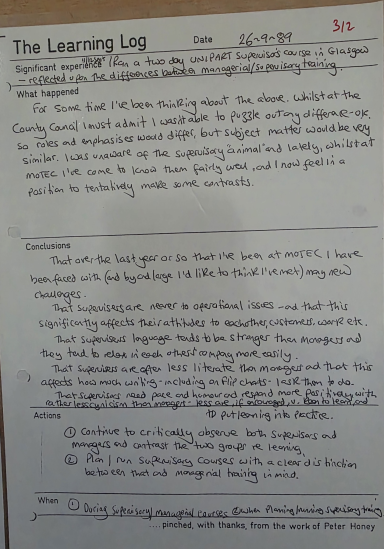 3/2
The Learning Log
Date 26-9-89
Significant experience Ran a two day UNIPART Supervisors course in Glasgow
- reflected upon the differences between managerial/supervisory training
What happened
For some time I've been thinking about the above. Whilst at the
County Council I must admit I wasn't able to puzzle out any difference - ok,
so roles and emphasises would differ, but subject matter would be very
similar. I was unaware of the supervisory 'animal' and lately, whilst at
MOTEC I've come to know them fairly well, and I now feel in a
position to tentatively make some contrasts.
Conclusions
That over the last year or so that I've been at MOTEC I have
been faced with (and by and large I'd like to think I've met) many new
challenges.
That supervisors are nearer to operational issues - and that this
significantly affects their attitudes to each other, customers, work etc.
That supervisors language tends to be stronger than managers and
they tend to relax in each others company more easily.
That supervisors are often less literate than managers and that this
affects how much writing - including on flip charts - I ask them to do.
That supervisors need pace and humour and respond more positively with
rather less cynicism than managers - less are, if encouraged, to learn, and
to put learning into practice.
Actions
① Continue to critically observe both supervisors and
managers and contrast the two groups re learning.
② Plan / run supervisory courses with a clear distinction
between that and managerial training in mind.
When ① During supervisory/managerial courses ② when planning/running supervisory training
....pinched, with thanks, from the work of Peter Honey